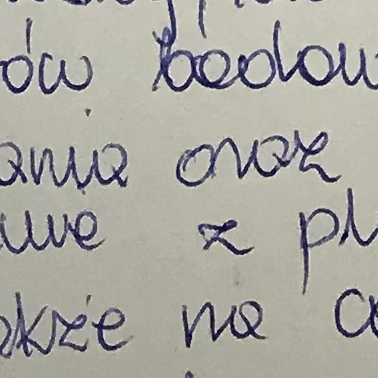 ów budow
ania oraz
we z pl
akże na